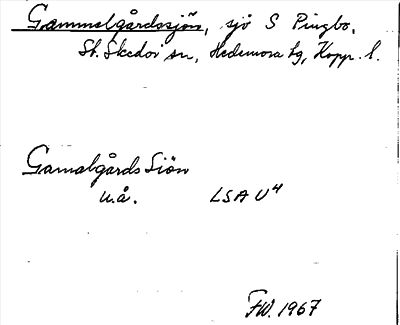 Gammelgårdssjön, sjö S Pingbo,
St. Skedvi sn, Hedemora tg, Kopp. l.
Gamalgårds Siön
u.å. LSA U4
FW. 1967